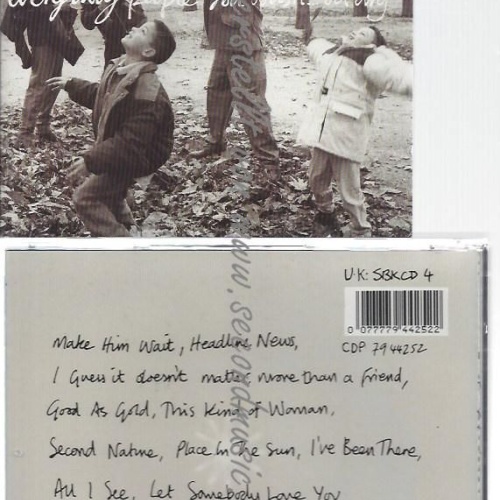 everyday people
U.K: SBKCD 4
0 077779 442522
CDP 7944252
Make Him Wait, Headline News,
I Guess it doesn't matter, more than a friend,
Good As Gold, This Kind of Woman,
Second Nature, Place In The Sun, I've Been There,
All I See, Let Somebody Love You